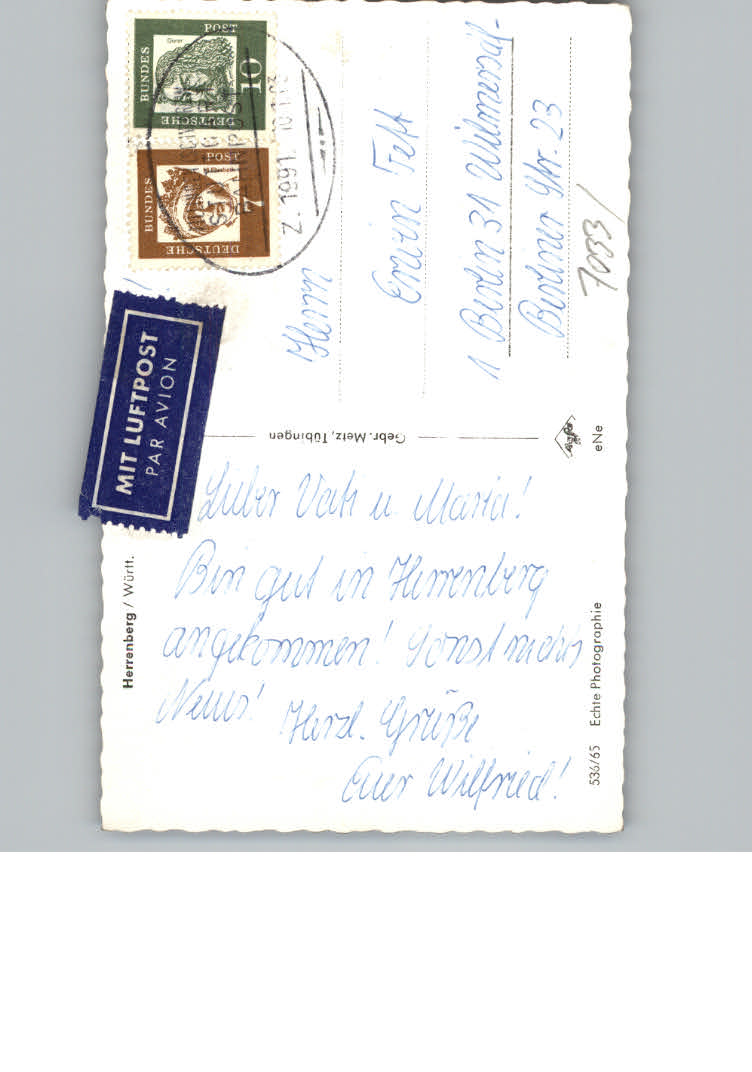 Herrenberg / Württ.
MIT LUFTPOST
PAR AVION
Lieber Vati u. Maria!
Bin gut in Herrenberg
angekommen! Sonst nichts
Neues! Herzl. Grüße
Euer Wilfried!
536/65 Echte Photographie
Gebr. Metz, Tübingen
eNe
DEUTSCHE BUNDES POST
10
Dürer
DEUTSCHE BUNDES POST
7
BAHNPOST
Z. 1991
Herrn
Erwin
1 Berlin 31 Wilmersdf.
Berliner Str. 23